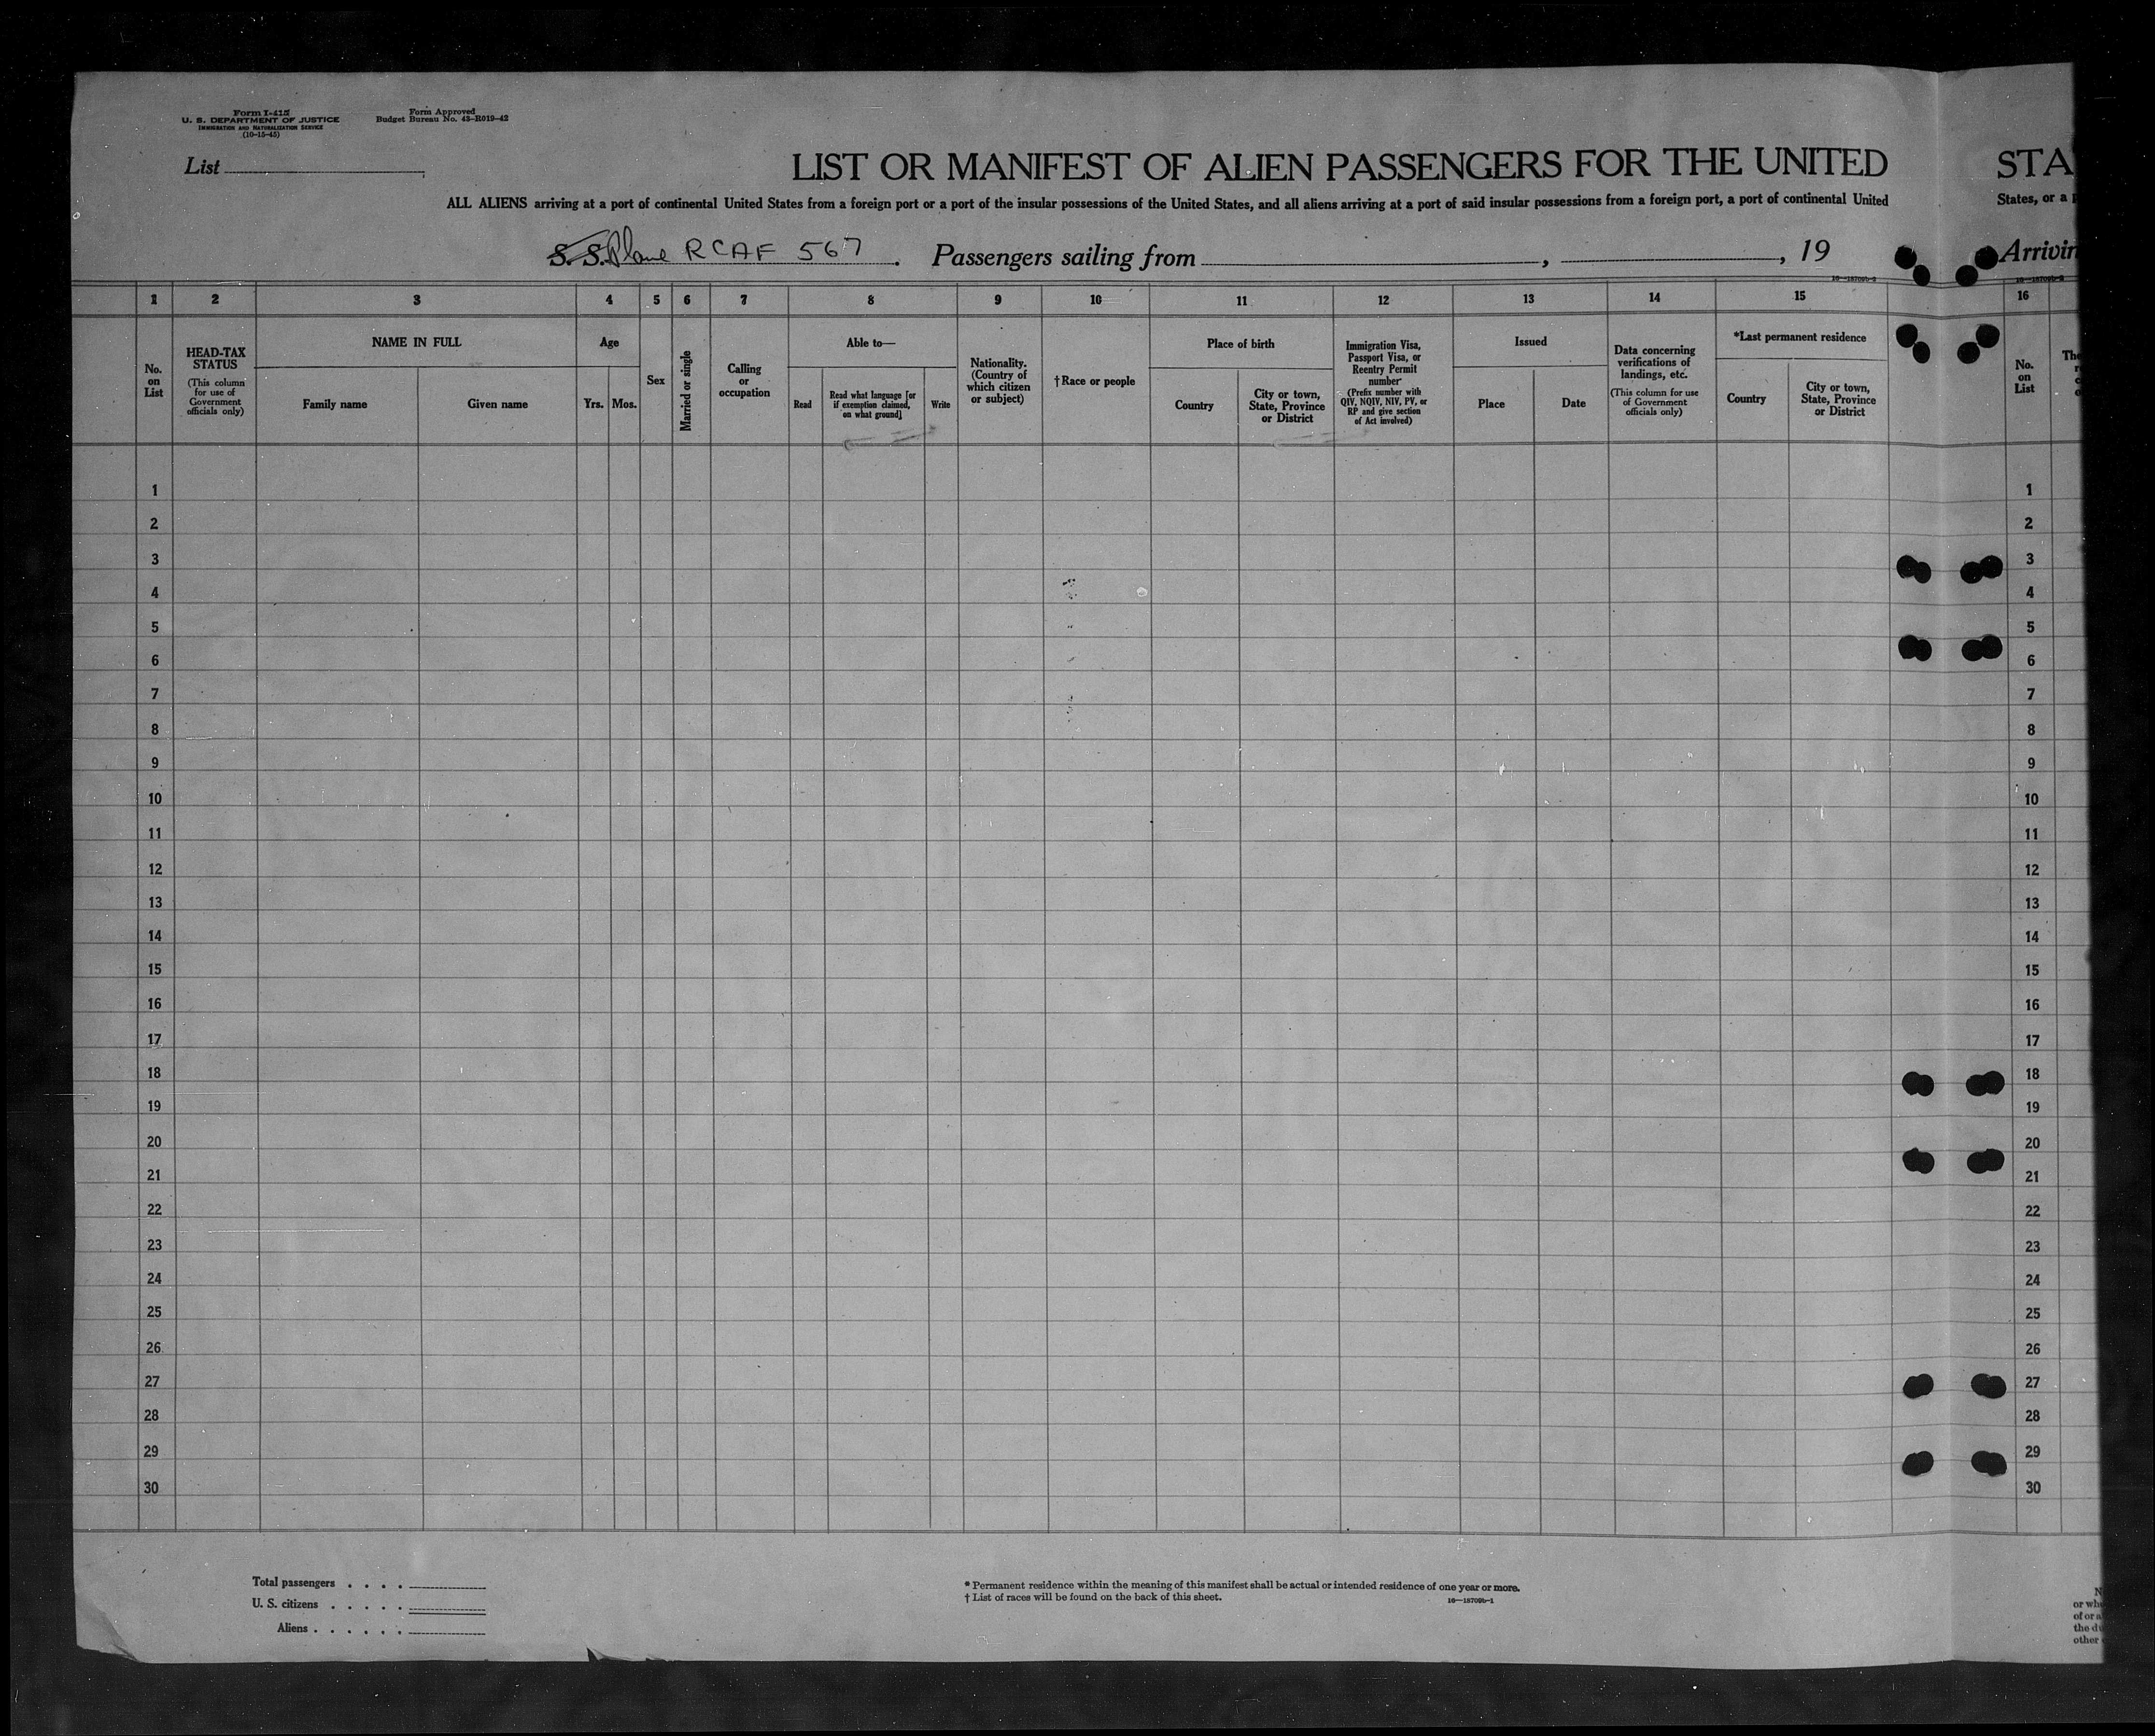 Form I-415
U. S. DEPARTMENT OF JUSTICE
IMMIGRATION AND NATURALIZATION SERVICE
(10-15-45)
Form Approved
Budget Bureau No. 43-R019-42
List
LIST OR MANIFEST OF ALIEN PASSENGERS FOR THE UNITED STA
ALL ALIENS arriving at a port of continental United States from a foreign port or a port of the insular possessions of the United States, and all aliens arriving at a port of said insular possessions from a foreign port, a port of continental United States, or a
S. S. Plane RCAF 567. Passengers sailing from , , 19 Arrivin
16—18709b-2
1 2 3 4 5 6 7 8 9 10 11 12 13 14 15 16
No. on List
HEAD-TAX STATUS
(This column for use of Government officials only)
NAME IN FULL
Family name
Given name
Age
Yrs.
Mos.
Sex
Married or single
Calling or occupation
Able to—
Read
Read what language [or if exemption claimed, on what ground]
Write
Nationality. (Country of which citizen or subject)
†Race or people
Place of birth
Country
City or town, State, Province or District
Immigration Visa, Passport Visa, or Reentry Permit number
(Prefix number with QIV, NQIV, NIV, PV, or RP and give section of Act involved)
Issued
Place
Date
Data concerning verifications of landings, etc.
(This column for use of Government officials only)
*Last permanent residence
Country
City or town, State, Province or District
No. on List
1 1
2 2
3 3
4 4
5 5
6 6
7 7
8 8
9 9
10 10
11 11
12 12
13 13
14 14
15 15
16 16
17 17
18 18
19 19
20 20
21 21
22 22
23 23
24 24
25 25
26 26
27 27
28 28
29 29
30 30
Total passengers . . . .
U. S. citizens . . . . .
Aliens . . . . . .
* Permanent residence within the meaning of this manifest shall be actual or intended residence of one year or more.
† List of races will be found on the back of this sheet.
16—18709b-1
or wh
of or a
the du
other